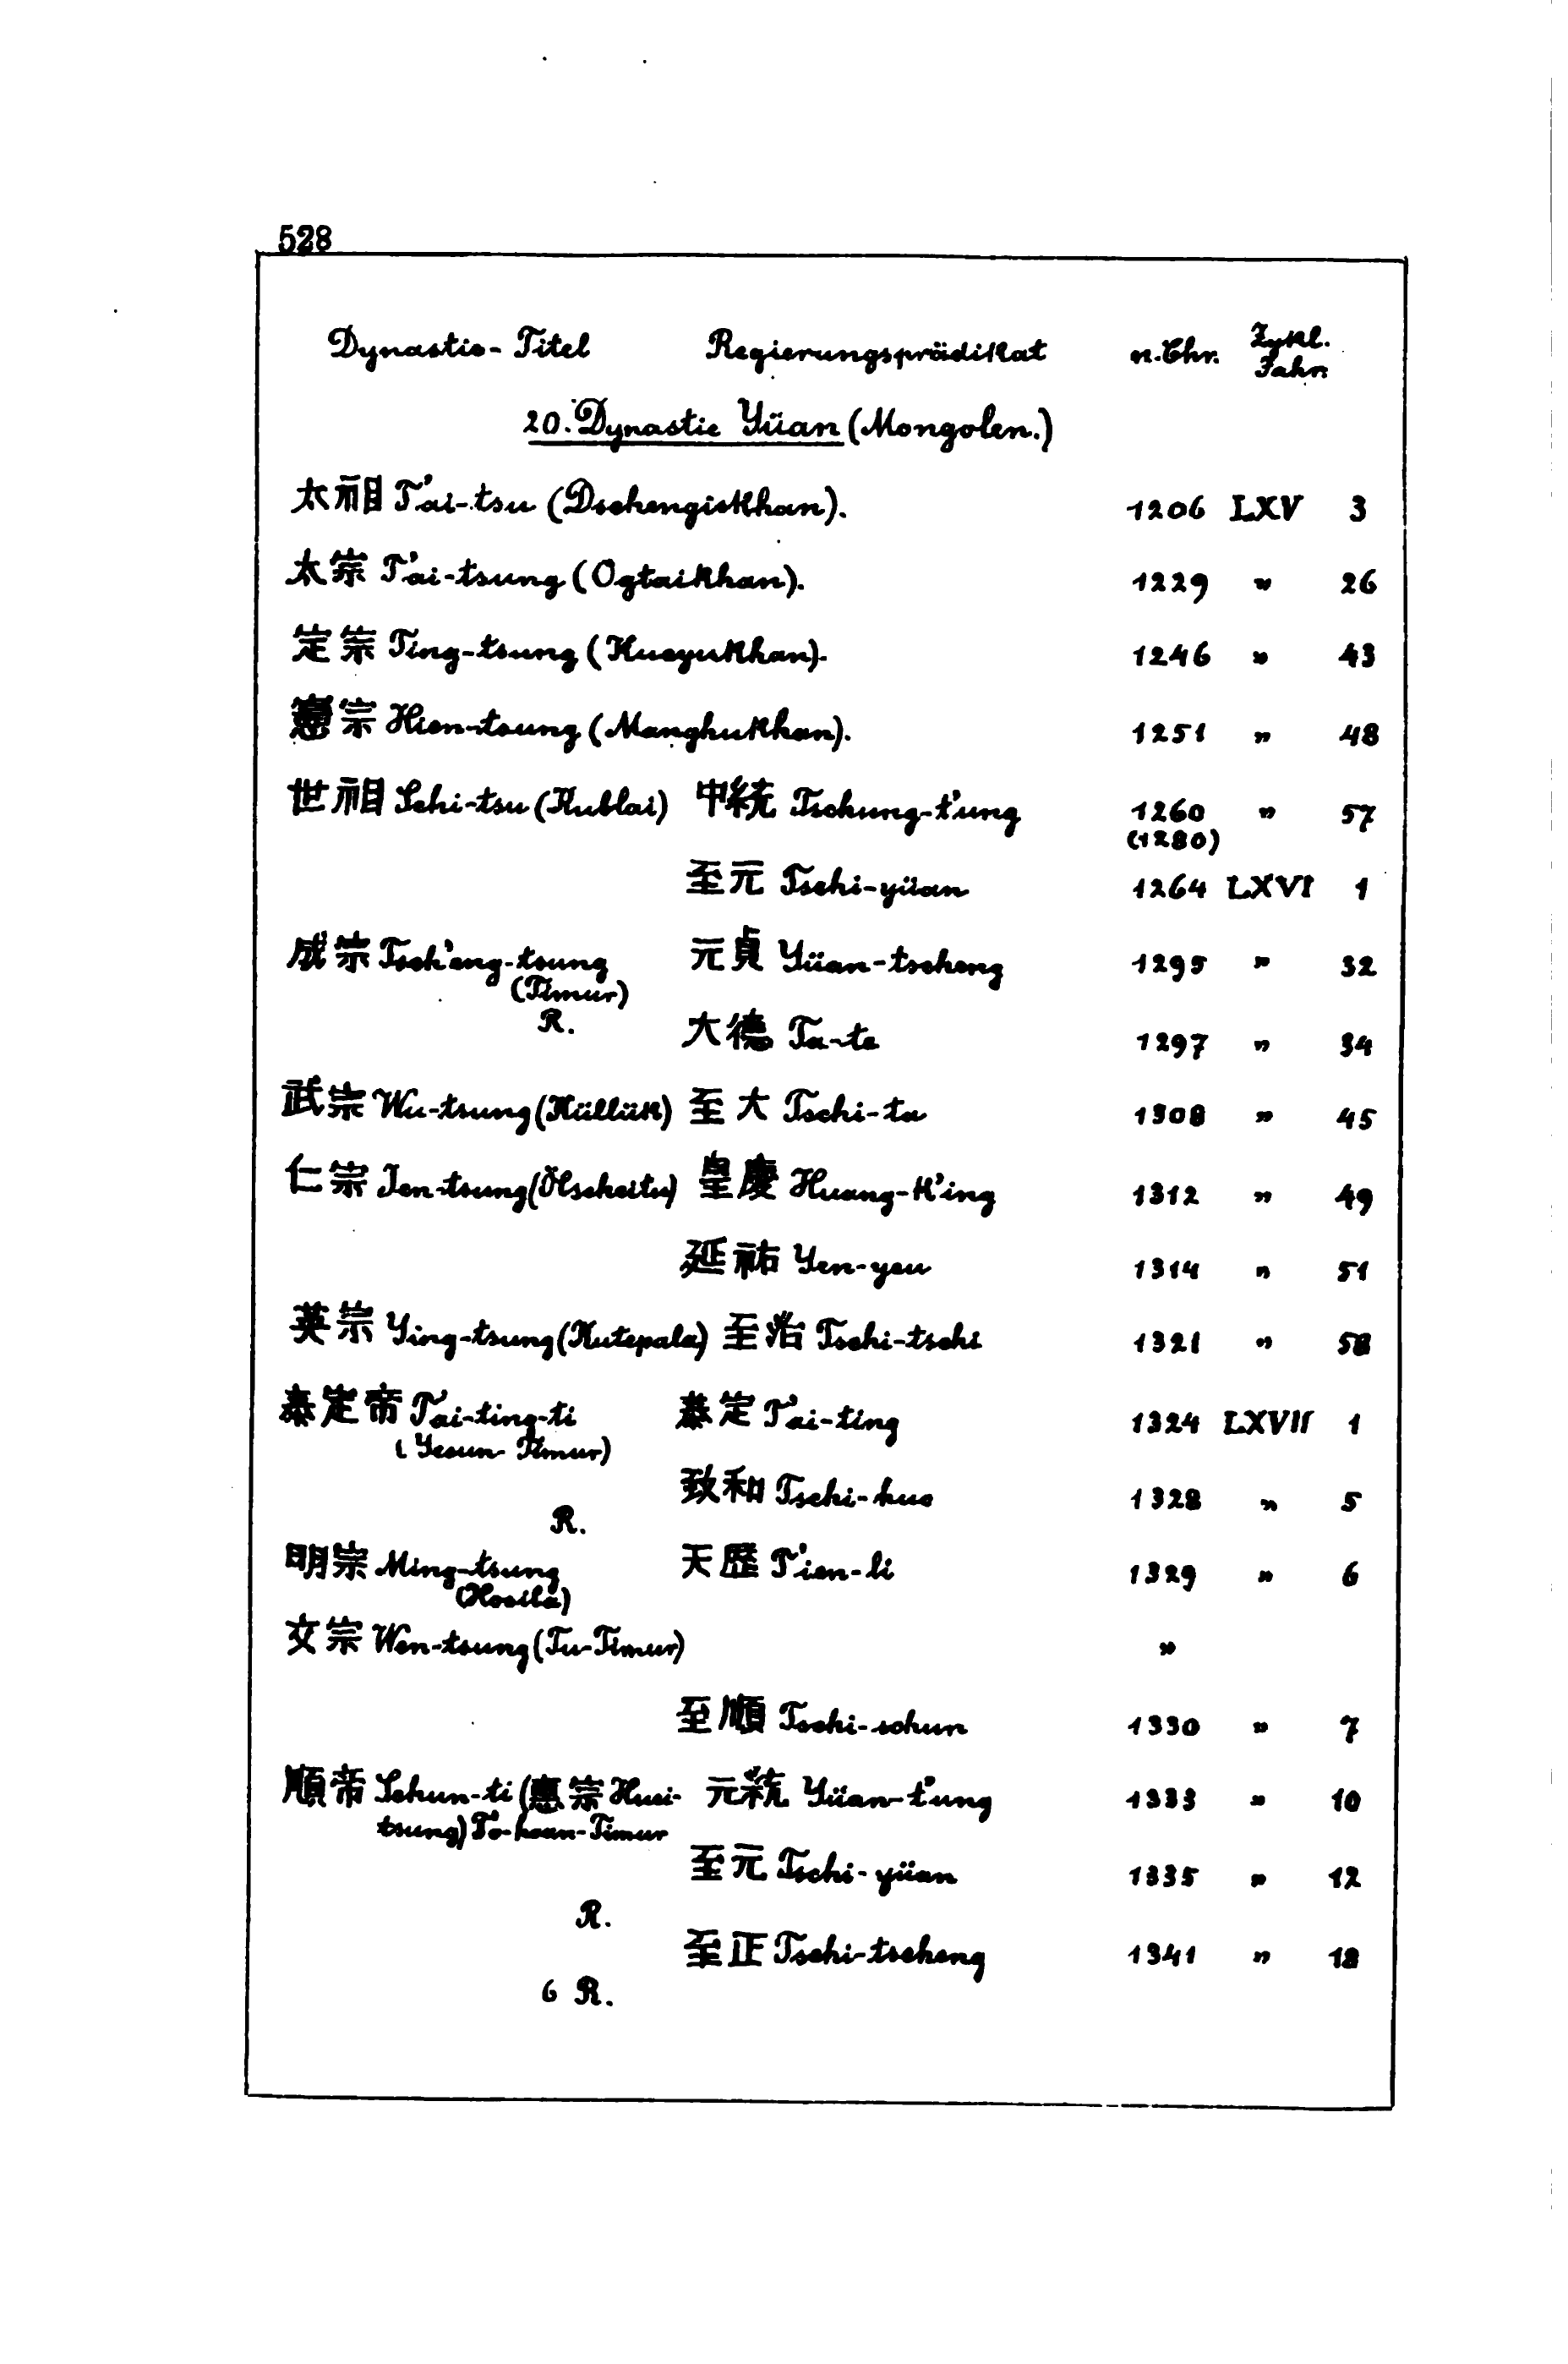 528
Dynastie-Titel Regierungsprädikat n. Chr. Zykl. Jahr.
20. Dynastie Yüan (Mongolen.)
太祖 T'ai-tsu (Dschengiskhan). 1206 LXV 3
太宗 T'ai-tsung (Ogtaikhan). 1229 " 26
定宗 Ting-tsung (Kueyukhan). 1246 " 43
憲宗 Hien-tsung (Manghukhan). 1251 " 48
世祖 Schi-tsu (Kublai) 中統 Tschung-t'ung 1260 " 57
(1280)
至元 Tschi-yüan 1264 LXVI 1
成宗 Tsch'eng-tsung 元貞 Yüan-tscheng 1295 " 32
(Timur)
R. 大德 Ta-te 1297 " 34
武宗 Wu-tsung (Küllük) 至大 Tschi-ta 1308 " 45
仁宗 Jen-tsung (Ölscheitu) 皇慶 Huang-k'ing 1312 " 49
延祐 Yen-yeu 1314 " 51
英宗 Ying-tsung (Kutepala) 至治 Tschi-tschi 1321 " 58
泰定帝 T'ai-ting-ti 泰定 T'ai-ting 1324 LXVII 1
(Yesun-Timur)
致和 Tschi-huo 1328 " 5
R.
明宗 Ming-tsung 天歷 T'ien-li 1329 " 6
(Hosila)
文宗 Wen-tsung (Tu-Timur) "
至順 Tschi-schun 1330 " 7
順帝 Schun-ti (惠宗 Huei- 元統 Yüan-t'ung 1333 " 10
tsung) To-hoan-Timur
至元 Tschi-yüan 1335 " 12
R.
至正 Tschi-tscheng 1341 " 18
6 R.